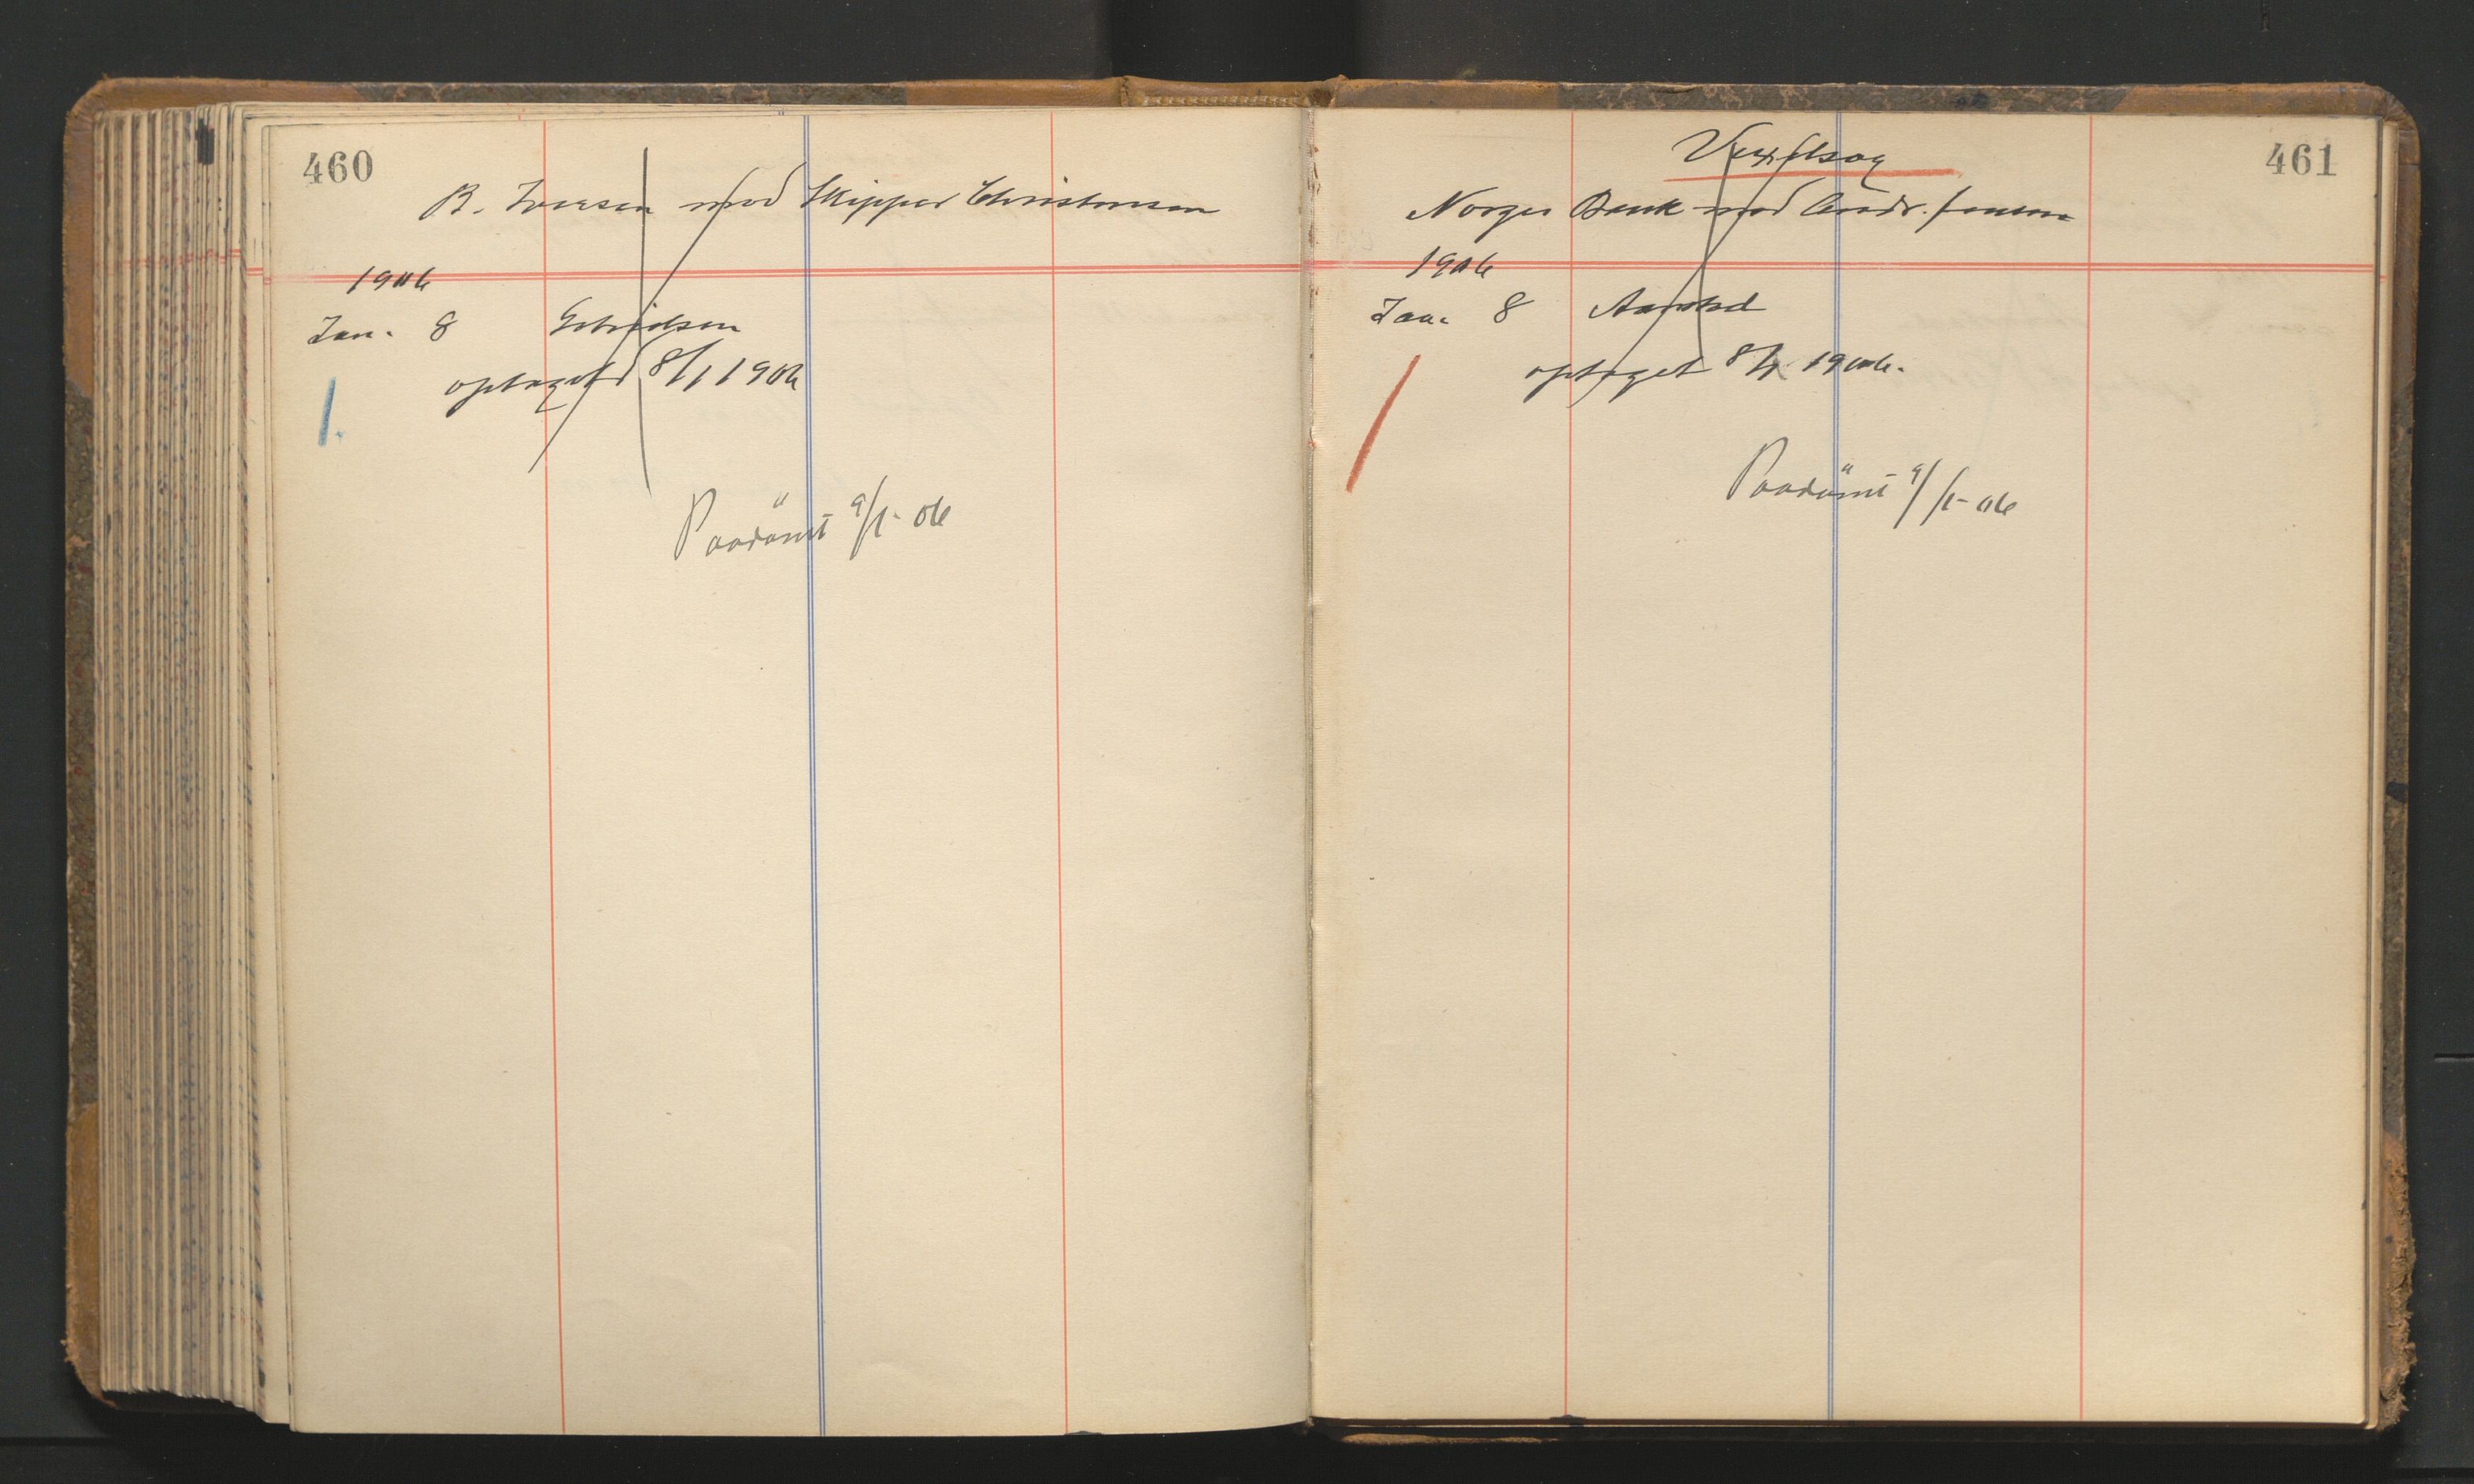 460
B. Iversen mod Skipper Christensen
1906
Jan. 8
optaget 8/1 1906
1.
Paadömt 9/1-06
461
Vexelsag
Norges Bank mod Andr. Jensen
1906
Jan. 8 Aarstad
optaget 8/1 1906.
Paadömt 9/1-06